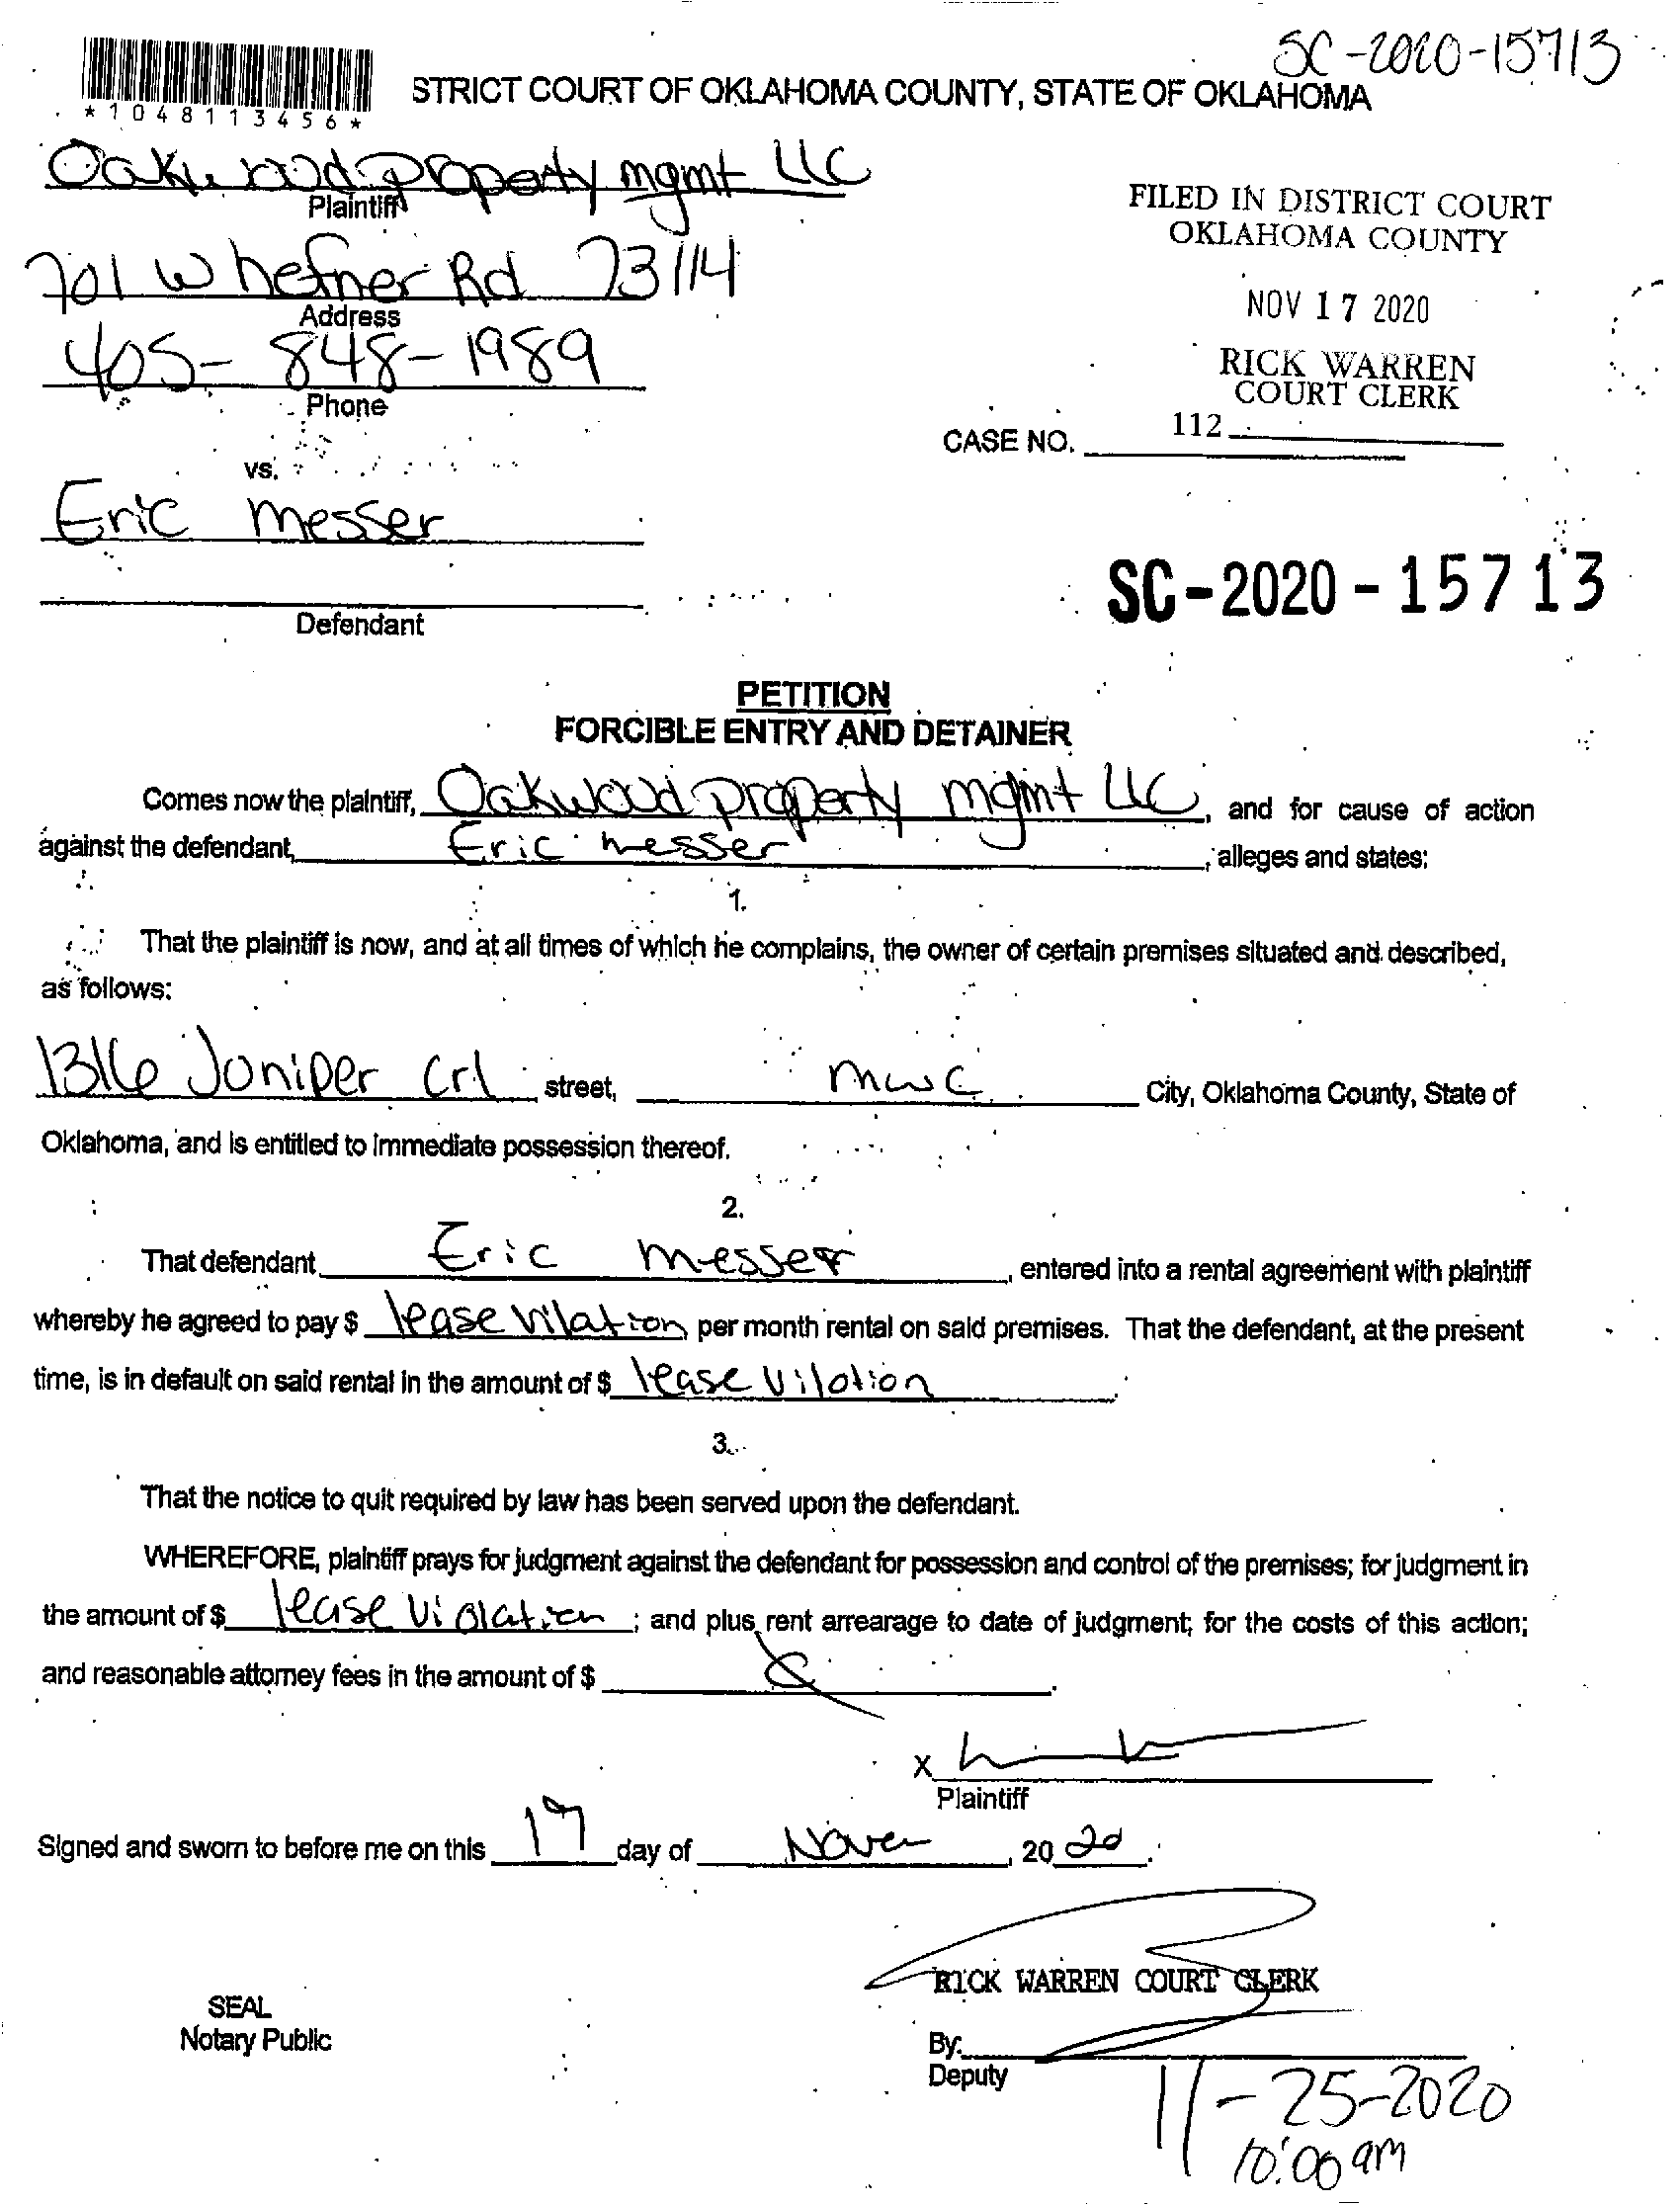 SC-2020-15713
STRICT COURT OF OKLAHOMA COUNTY, STATE OF OKLAHOMA
*1048113456*
Oakwood property mgmt LLC
Plaintiff
FILED IN DISTRICT COURT
OKLAHOMA COUNTY
701 W hefner Rd 73114
Address
NOV 17 2020
405-848-1989
Phone
RICK WARREN
COURT CLERK
112
CASE NO.
vs.
Eric messer
SC-2020-15713
Defendant
PETITION
FORCIBLE ENTRY AND DETAINER
Comes now the plaintiff, Oakwood property mgmt LLC, and for cause of action
against the defendant, Eric messer, alleges and states:
1.
That the plaintiff is now, and at all times of which he complains, the owner of certain premises situated and described,
as follows:
1316 Juniper Crl street, mwc City, Oklahoma County, State of
Oklahoma, and is entitled to immediate possession thereof.
2.
That defendant Eric messer, entered into a rental agreement with plaintiff
whereby he agreed to pay $ lease vilation per month rental on said premises. That the defendant, at the present
time, is in default on said rental in the amount of $ lease vilotion.
3.
That the notice to quit required by law has been served upon the defendant.
WHEREFORE, plaintiff prays for judgment against the defendant for possession and control of the premises; for judgment in
the amount of $ lease violation; and plus rent arrearage to date of judgment; for the costs of this action;
and reasonable attorney fees in the amount of $
X
Plaintiff
Signed and sworn to before me on this 17 day of Novem, 2020.
RICK WARREN COURT CLERK
SEAL
Notary Public
By:
Deputy
11-25-2020
10:00 am